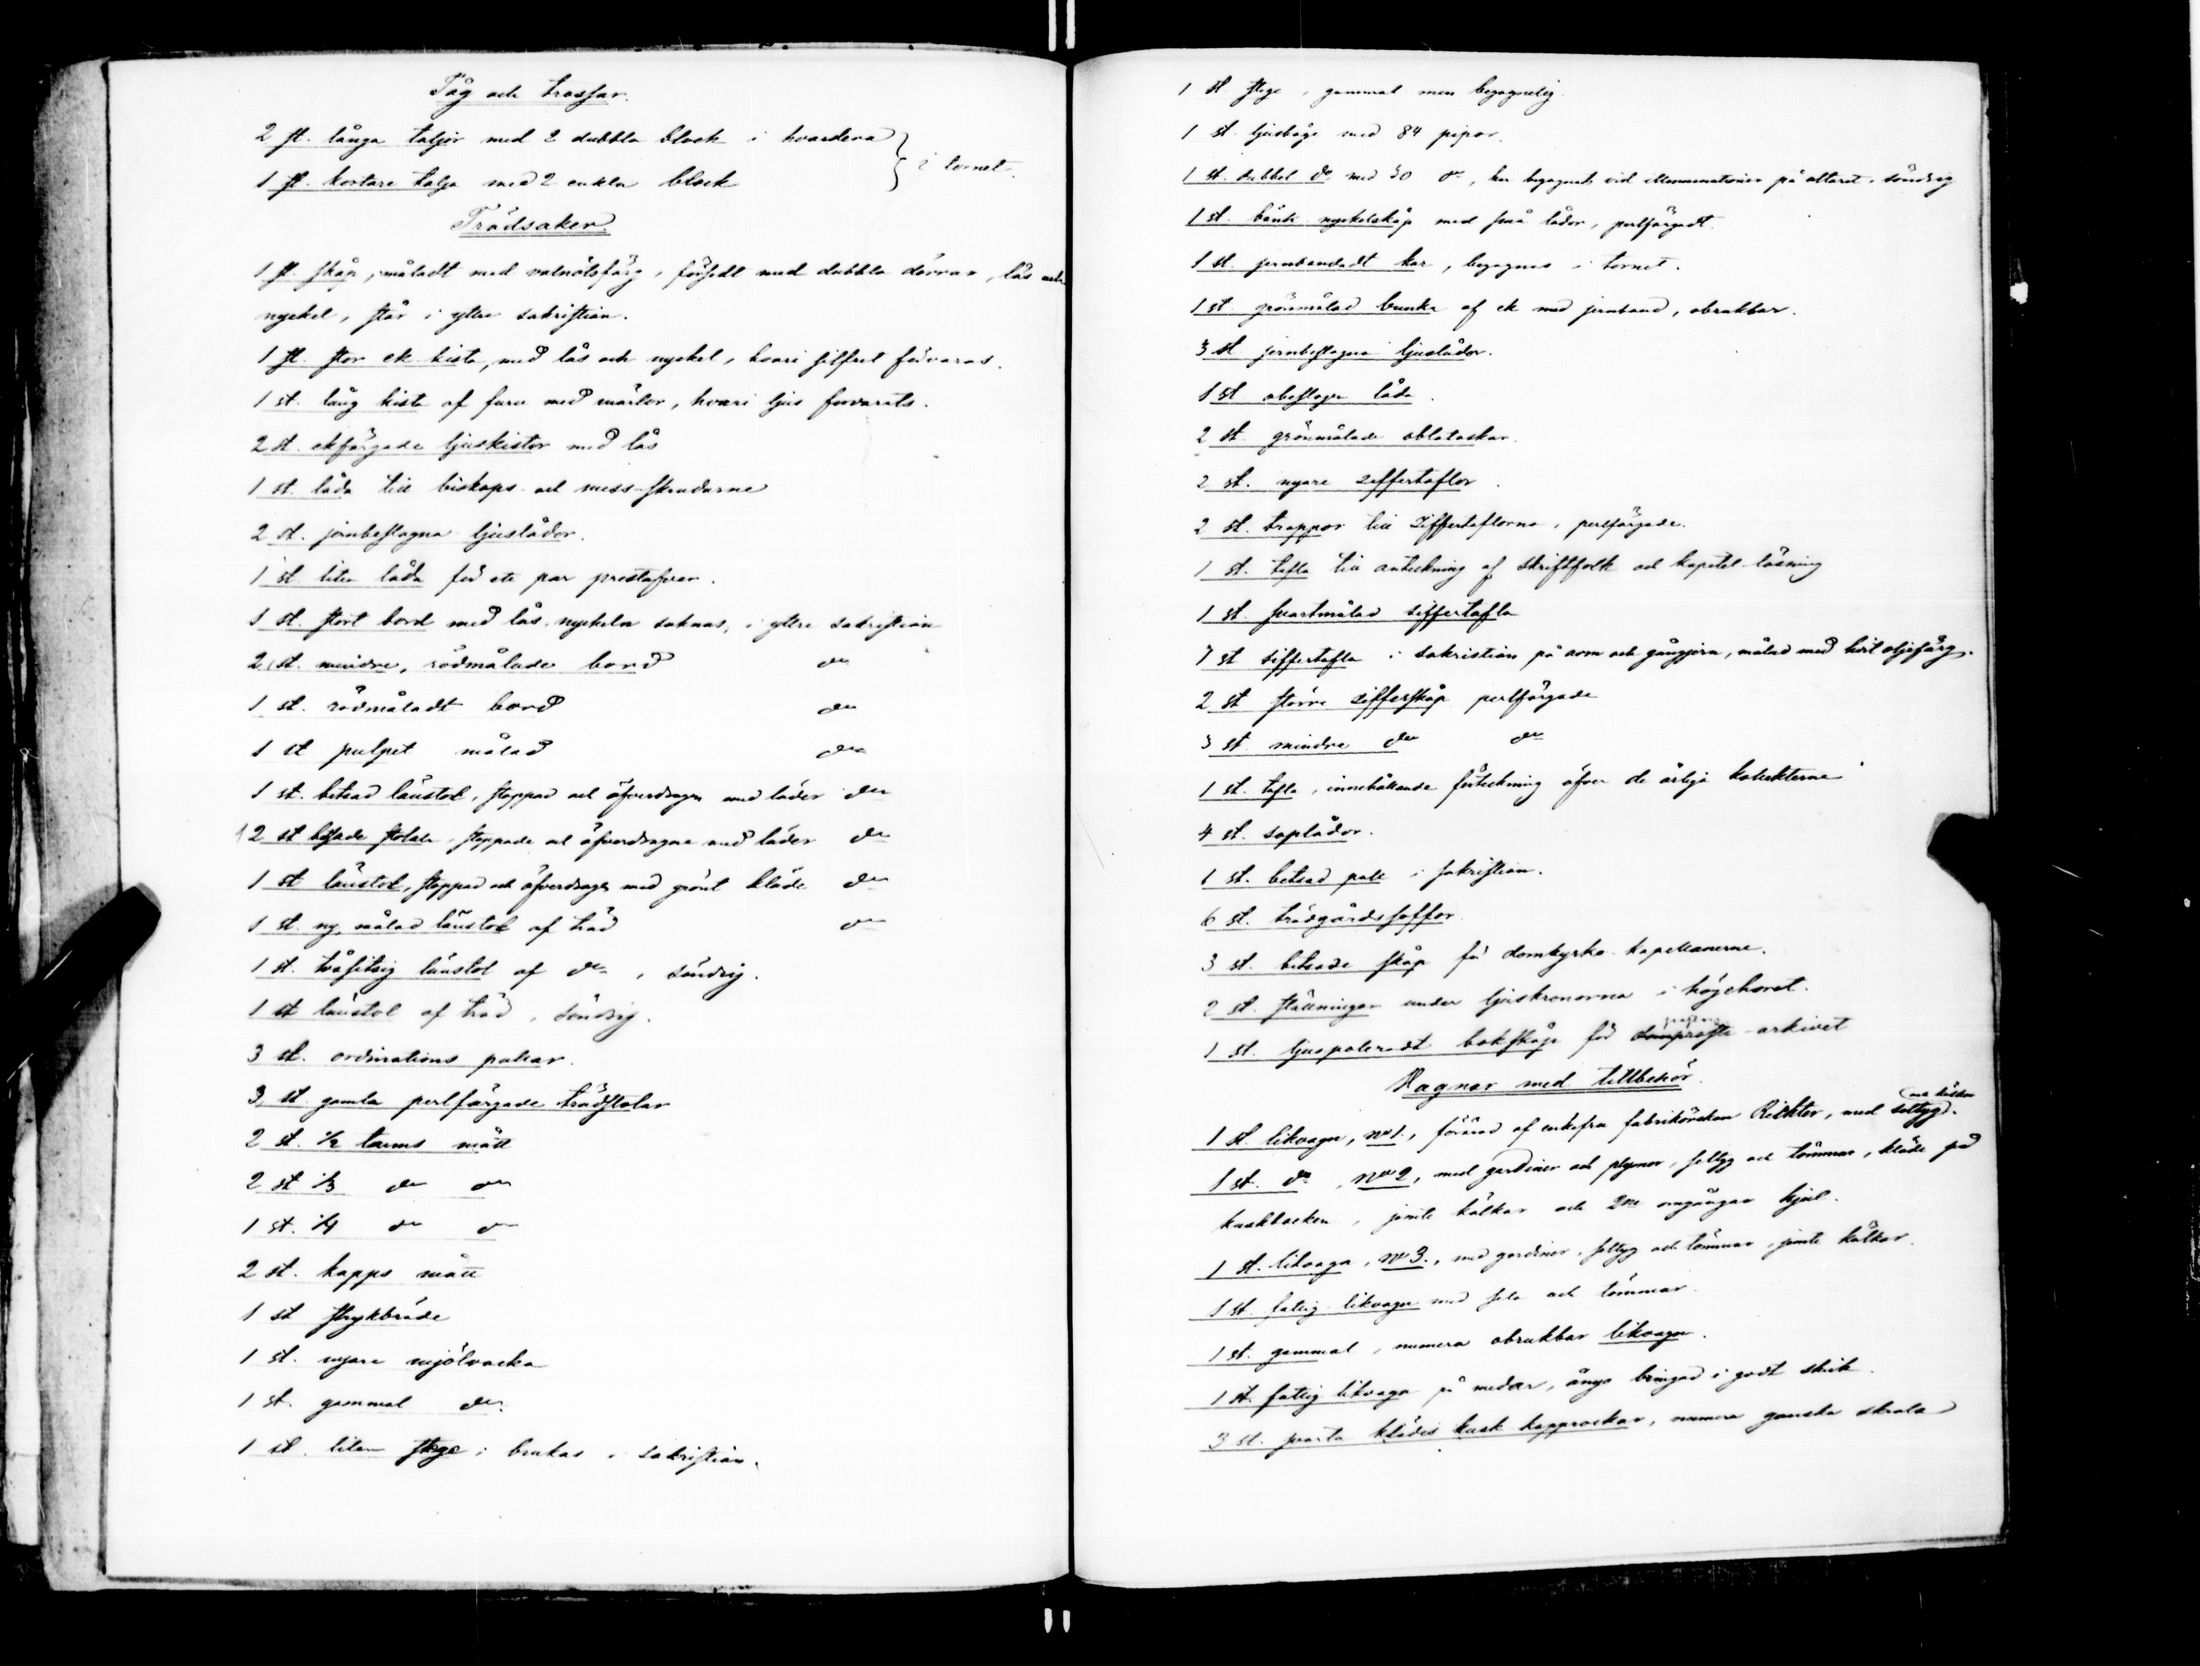 Tåg och trossar.
2 st. långa taljor med 2 dubbla block i hvardera
1 st. kortare talja med 2 enkla block
i tornet.
Trädsaker.
1 st. skåp, måladt med valnötsfärg, försedt med dubbla dörrar, lås och
nyckel, står i yttre sakristian.
1 st. stor ek kista, med lås och nyckel, hvari silfret förvaras.
1 st. lång kista af furu med märlor, hvari ljus förvarats.
2 st. ekfärgade ljuskistor med lås
1 st. låda till biskops- och mess-skrudarne
2 st. jernbeslagna ljuslådor.
1 st. liten låda för ett par prestafvar.
1 st. stort bord med lås, nyckeln saknas, i yttre sakristian
2 st. mindre, rödmålade bord do
1 st. rödmåladt bord do
1 st pulpet målad do
1 st. betsad länstol, stoppad och öfverdragen med läder do
12 st betsade stolar, stoppade och öfverdragna med läder do
1 st länstol, stoppad och öfverdragen med grönt kläde do
1 st. ny, målad länstol af träd do
1 st. tvåsitsig länstol af do, söndrig.
1 st länstol af träd, söndrig.
3 st. ordinations pallar.
3 st. gamla perlfärgade trädstolar
2 st. 1/2 tunns mått
2 st 1/3 do do
1 st. 1/4 do do
2 st. kapps mått
1 st strykbräde
1 st. nyare mjölvacka
1 st. gammal do.
1 st. liten stege; brukas i sakristian.
1 st stege, gammal men begagnelig.
1 st. ljusbåge med 84 pipor.
1 st. dubbel do med 30 do, har begagnats vid illuminationer på altaret. söndrig
1 st. bänk nyckelskåp med små lådor, perlfärgadt.
1 st. jernbandadt kar, begagnas i tornet.
1 st grönmålad bunke af ek med jernband, obrukbar.
3 st jernbeslagna ljuslådor.
1 st obeslagen låda.
2 st. grönmålade oblataskar.
2 st. nyare ziffertaflor.
2 st. trappor till Ziffertaflorna, perlfärgade.
1 st. tafla till anteckning af skriftfolk och kapitel-läsning
1 st. svartmålad siffertafla
1 st siffertafla i sakristian på arm och gångjern, målad med hvit oljefärg.
2 st större zifferskåp perlfärgade
3 st. mindre do do
1 st. tafla, innehållande förteckning öfver de årliga kollekterne
4 st. soplådor.
1 st. betsad pall i sakristian.
6 st. trädgårdssoffor.
3 st. betsade skåp för domkyrko-kapellanerne.
2 st. ställningar under ljuskronorna i högchoret.
1 st. ljuspoleradt bokskåp för domprosts-arkivet
Vagnar med tillbehör.
1 st. likvagn, No 1., förärad af enkefru fabrikörskan Richter, med seltyg.
1 st. do, No 2, med gardiner och plymer, seltyg och tömmar, kläde på
kuskbocken, jemte kälkar och 2ne omgångar hjul.
1 st. likvagn, No 3., med gardiner, seltyg och tömmar, jemte kälkar.
1 st. fattig-likvagn med sele och tömmar.
1 st. gammal, numera obrukbar likvagn.
1 st. fattig likvagn på medar, ånyo bringad i godt skick.
3 st. svarta klädes kusk kapprockar, numera ganska skrala